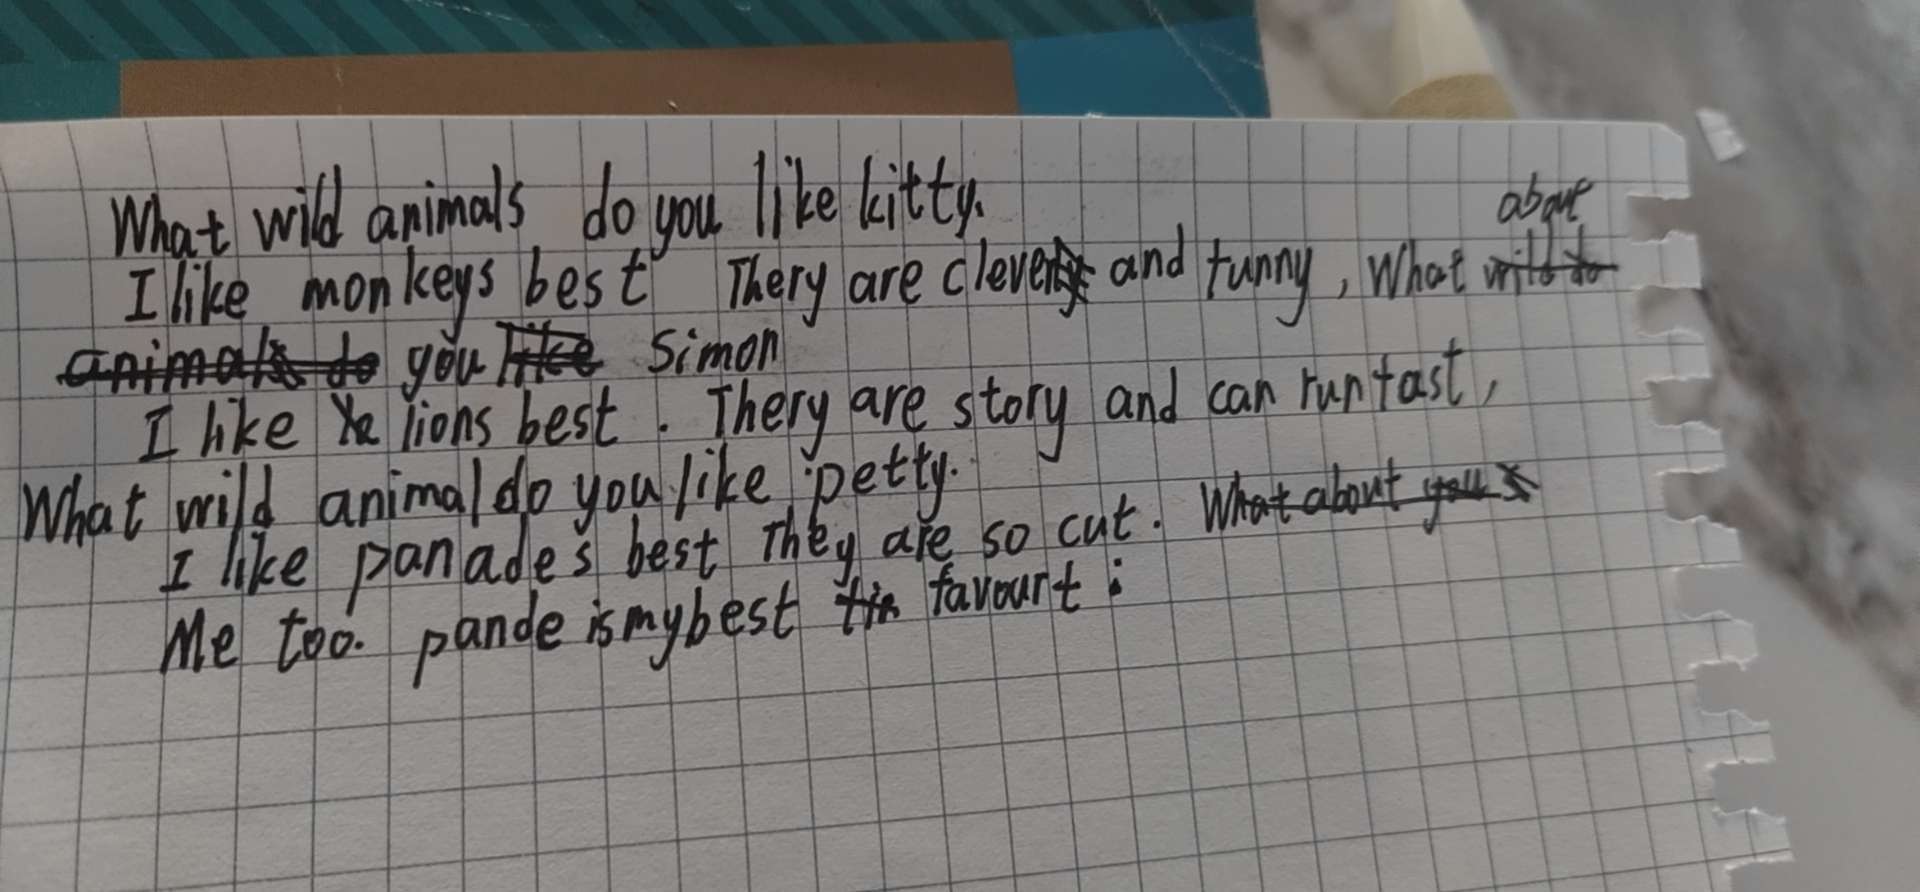 What wild animals do you like kitty.
about
I like monkeys best Thery are clever and funny, What wild do
animals do you like Simon
I like lions best. Thery are story and can run fast,
What wild animal do you like petty.
I like panades best They are so cut. What about you
Me too. pande is my best favourt :